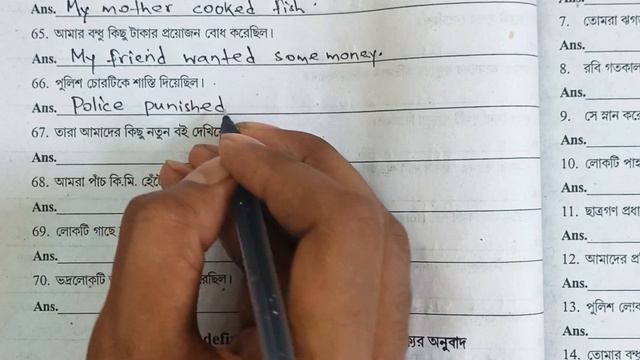 Ans. My mother cooked fish.
65. আমার বন্ধু কিছু টাকার প্রয়োজন বোধ করেছিল।
Ans. My friend wanted some money.
66. পুলিশ চোরটিকে শাস্তি দিয়েছিল।
Ans. Police punished
67. তারা আমাদের কিছু নতুন বই
Ans.
68. আমরা পাঁচ কি.মি.
Ans.
69. লোকটি গাছে
Ans.
70. ভদ্রলোকটি
Ans.
অনুবাদ
Ans.
7. তোমরা
Ans.
8. রবি গতকাল
Ans.
9. সে স্নান
Ans.
10. লোকটি
Ans.
11. ছাত্রগণ
Ans.
12. আমাদের
Ans.
13. পুলিশ
Ans.
14. তোমার